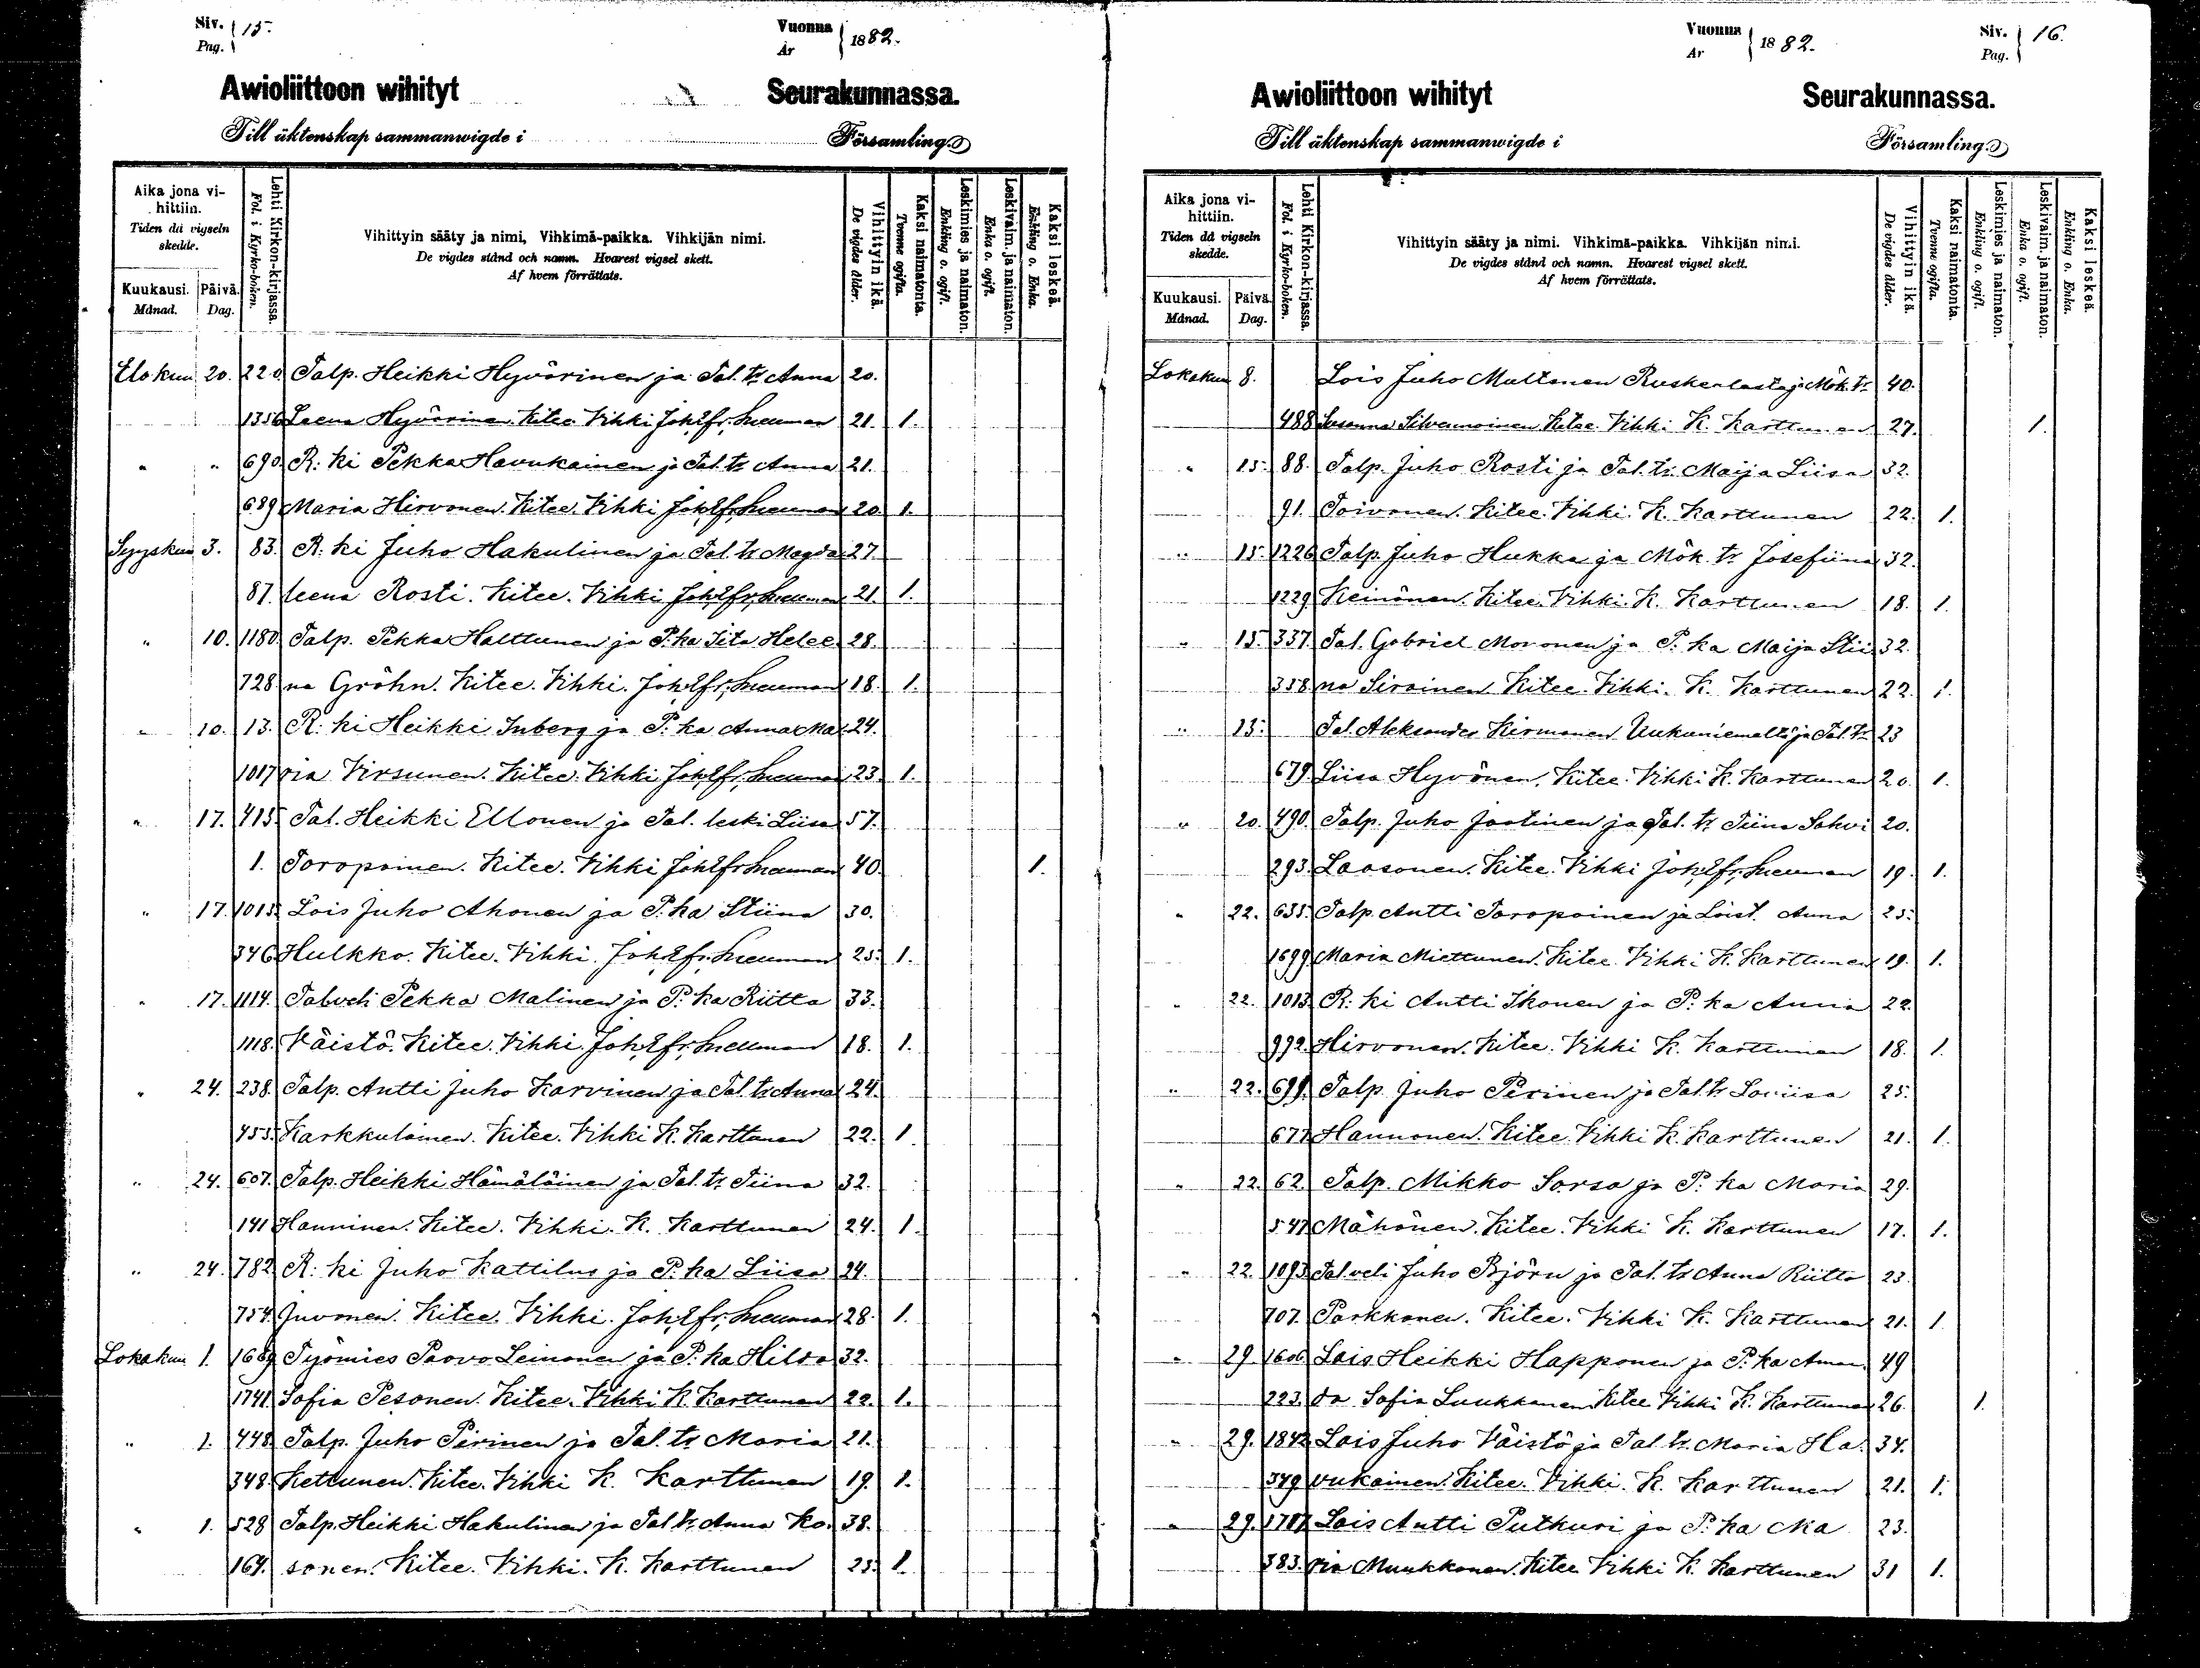 Siv. Pag. 15.
Vuonna År 1882.
Awioliittoon wihityt Seurakunnassa.
Till äktenskap sammanwigde i Församling.
Aika jona vihittiin. Tiden då vigseln skedde.
Kuukausi. Månad. Päivä. Dag.
Lehti Kirkon-kirjassa. Fol. i Kyrko-boken.
Vihittyin sääty ja nimi, Vihkimä-paikka. Vihkijän nimi.
De vigdes stånd och namn. Hvarest vigsel skett.
Af hvem förrättats.
Vihittyin ikä. De vigdes ålder.
Kaksi naimatonta. Tvenne ogifta.
Leskimies ja naimaton. Enkling o. ogift.
Leskivaim. ja naimaton. Enka o. ogift.
Kaksi leskeä. Enkling o. Enka.
Elokuu 20. 220 Talp. Heikki Hyvärinen ja Tal. tr Anna 20.
1356 Leena Hyvärinen. Kitee. Vihki Joh. Efr. Snellman 21. 1.
" " 690. R:ki Pekka Havukainen ja Tal. tr Anna 21.
689 Maria Hirvonen. Kitee. Vihki Joh. Efr. Snellman 20. 1.
Syyskuu 3. 83. R:ki Juho Hakulinen ja Tal. tr Magda 27.
87. leena Rosti. Kitee. Vihki Joh. Efr. Snellman 21. 1.
" 10. 1180. Talp. Pekka Halttunen ja P:ka Iita Hele 28.
728. na Gröhn. Kitee. Vihki. Joh. Efr. Snellman 18. 1.
" 10. 13. R:ki Heikki Inberg ja P:ka Anna Ma 24.
1017 ria Virsunen. Kitee. Vihki Joh. Efr. Snellman 23. 1.
" 17. 415. Tal. Heikki Ellonen ja Tal. leski Liisa 57.
1. Toropainen. Kitee. Vihki Joh. Efr. Snellman 40. 1.
" 17. 1015. Lois Juho Ahonen ja P:ka Stiina 30.
346 Hulkko. Kitee. Vihki. Joh. Efr. Snellman 25. 1.
" 17. 1114. Talveli Pekka Malinen ja P:ka Riitta 33.
1118. Väistö. Kitee. Vihki Joh. Efr. Snellman 18. 1.
" 24. 238. Talp. Antti Juho Karvinen ja Tal. tr Anna 24.
453. Karkkulainen. Kitee. Vihki K. Karttunen 22. 1.
" 24. 607. Talp. Heikki Hämäläinen ja Tal. tr Tiina 32.
141 Hanninen. Kitee. Vihki. K. Karttunen 24. 1.
" 24. 782. R:ki Juho Kattilus ja P:ka Liisa 24.
754. Juvonen. Kitee. Vihki. Joh. Efr. Snellman 28. 1.
Lokakuu 1. 1689 Työmies Paavo Leinonen ja P:ka Hilda 32.
1741. Sofia Pesonen. Kitee. Vihki K. Karttunen 22. 1.
" 1. 448. Talp. Juho Pirinen ja Tal. tr Maria 21.
348. Kettunen. Kitee. Vihki K. Karttunen 19. 1.
" 1. 528 Talp. Heikki Hakulinen ja Tal tr. Anna Ko 38.
164. sonen. Kitee. Vihki. K. Karttunen 25. 1.
Vuonna År 1882.
Siv. Pag. 16.
Awioliittoon wihityt Seurakunnassa.
Till äktenskap sammanwigde i Församling.
Aika jona vihittiin. Tiden då vigseln skedde.
Kuukausi. Månad. Päivä. Dag.
Lehti Kirkon-kirjassa. Fol. i Kyrko-boken.
Vihittyin sääty ja nimi. Vihkimä-paikka. Vihkijän nimi.
De vigdes stånd och namn. Hvarest vigsel skett.
Af hvem förrättats.
Vihittyin ikä. De vigdes ålder.
Kaksi naimatonta. Tvenne ogifta.
Leskimies ja naimaton. Enkling o. ogift.
Leskivaim. ja naimaton. Enka o. ogift.
Kaksi leskeä. Enkling o. Enka.
Lokakuu 8. Lois Juho Multanen Ruskealasta ja Mök. tr 40.
488 Susanna Silvennoinen Kitee. Vihki K. Karttunen 27. 1.
" 15. 88. Talp. Juho Rosti ja Tal. tr. Maija Liisa 32.
91. Toivonen. Kitee. Vihki. K. Karttunen 22. 1.
" 15. 1226 Talp. Juho Hukka ja Mök. tr Josefiina 32.
1229 Keinänen. Kitee. Vihki. K. Karttunen 18. 1.
" 15. 337. Tal. Gabriel Moronen ja P:ka Maija Stii 32.
358 na Sirainen Kitee. Vihki. K. Karttunen 22. 1.
" 15. Tal. Aleksander Hirmanen Uukuniemeltä ja Tal. tr 23
679. Liisa Hyvönen. Kitee. Vihki K. Karttunen 20. 1.
" 20. 490. Talp. Juho Jaatinen ja Tal. tr. Tiina Sahvi 20.
293. Laasonen. Kitee. Vihki Joh. Efr. Snellman 19. 1.
" 22. 635. Talp. Antti Toropainen ja Loist. Anna 25.
1699 Maria Miettunen. Kitee. Vihki K. Karttunen 19. 1.
" 22. 1013. R:ki Antti Ikonen ja P:ka Anna 22.
992. Hirvonen. Kitee. Vihki K. Karttunen 18. 1.
" 22. 699. Talp. Juho Pirinen ja Tal. tr Loviisa 25.
677 Hannonen. Kitee. Vihki K. Karttunen 21. 1.
" 22. 62. Talp. Mikko Sorsa ja P:ka Maria 29.
547 Mähönen. Kitee. Vihki K. Karttunen 17. 1.
" 22. 1093. Talveli Juho Björn ja Tal. tr Anna Riitta 23.
707. Parkkonen. Kitee. Vihki K. Karttunen 21. 1
" 29. 1606 Lois Heikki Happonen ja P:ka Aman 49
223. da Sofia Luukkanen Kitee Vihki K. Karttunen 26. 1.
" 29. 1842 Lois Juho Väistö ja Tal. tr. Maria Ha 34.
349 vukainen. Kitee. Vihki. K. Karttunen 21. 1.
" 29. 1787 Lois Antti Putkuri ja P:ka Ma 23.
383. ria Muukkonen. Kitee Vihki K. Karttunen 31 1.